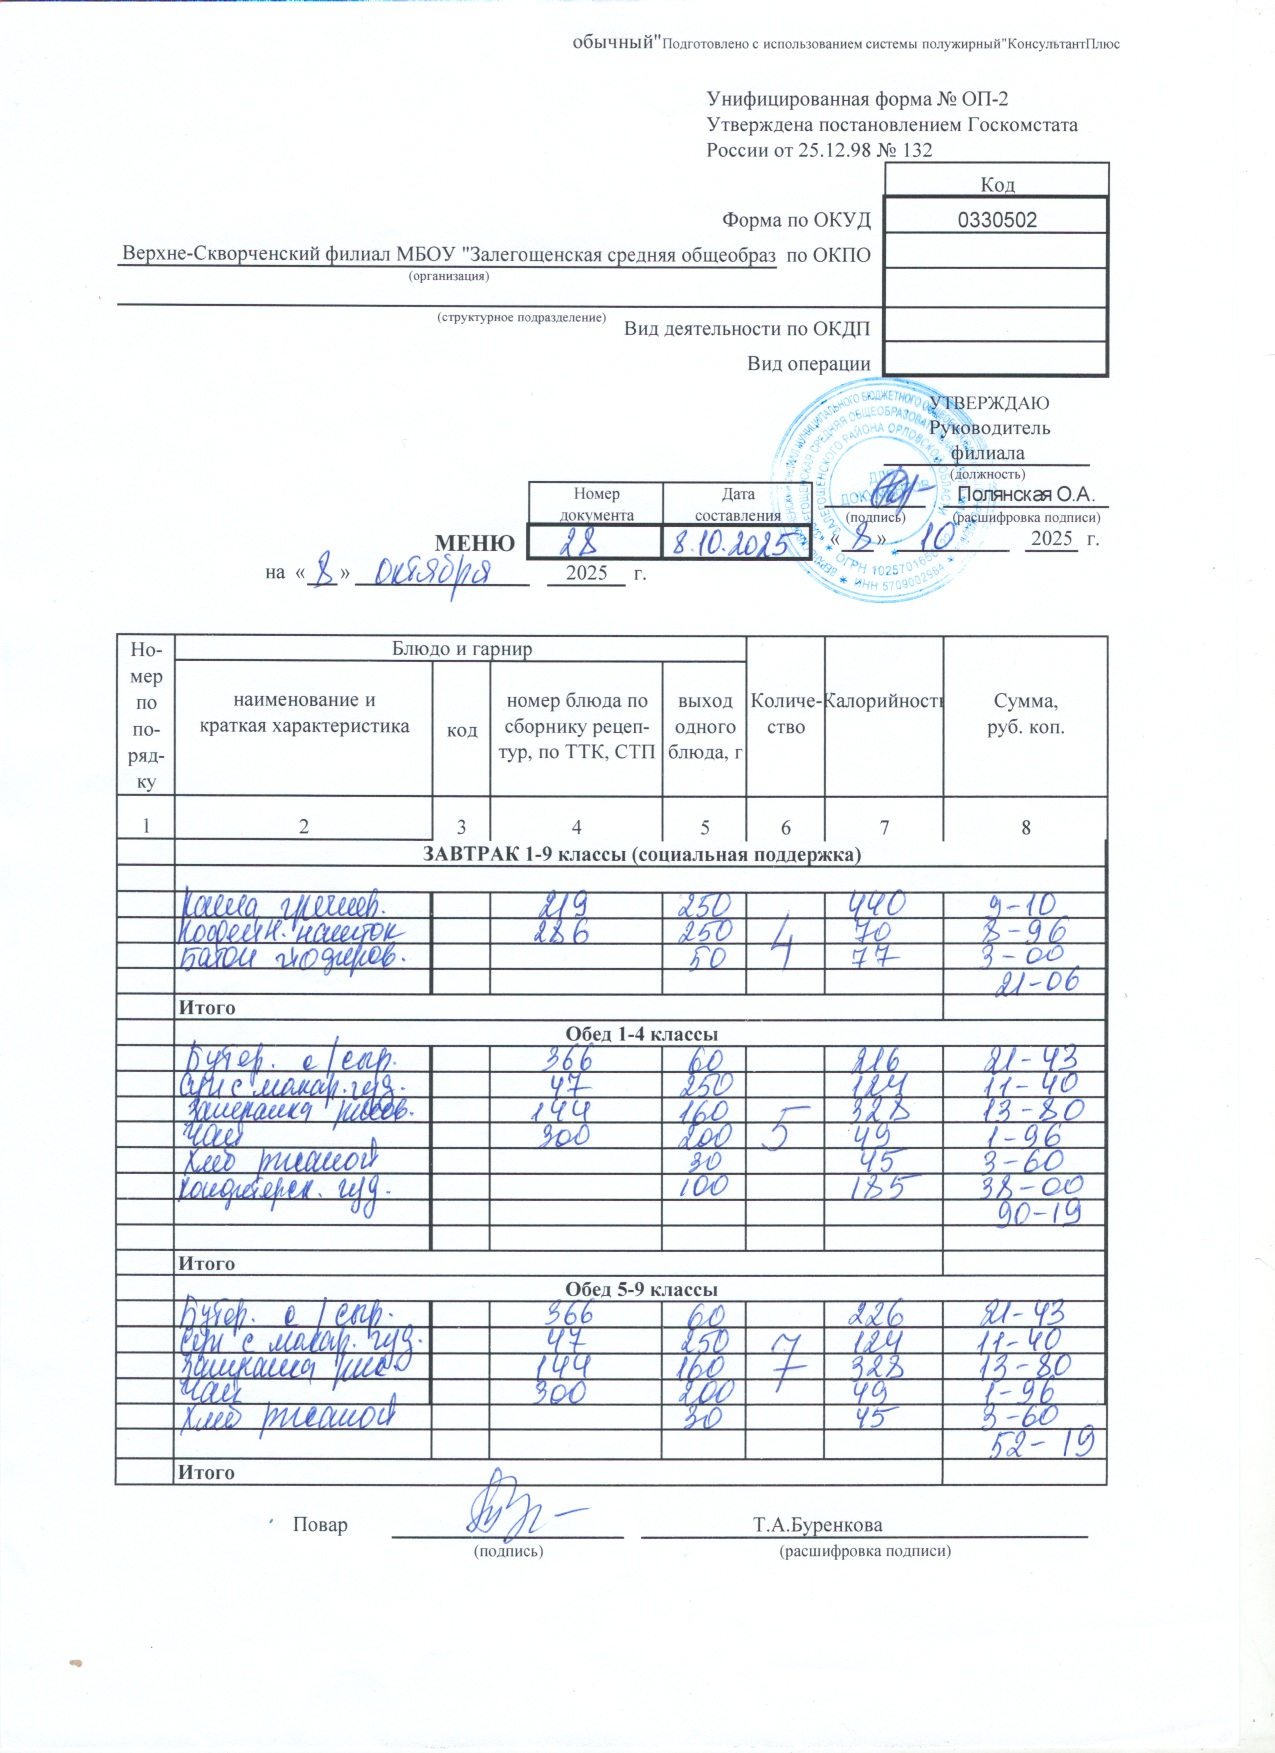 обычный"Подготовлено с использованием системы полужирный"КонсультантПлюс
Унифицированная форма № ОП-2
Утверждена постановлением Госкомстата
России от 25.12.98 № 132
Код
Форма по ОКУД 0330502
Верхне-Скворченский филиал МБОУ "Залегощенская средняя общеобраз по ОКПО
(организация)
(структурное подразделение)
Вид деятельности по ОКДП
Вид операции
УТВЕРЖДАЮ
Руководитель
филиала
(должность)
Полянская О.А.
(подпись) (расшифровка подписи)
« 8 » 10 2025 г.
Номер документа Дата составления
МЕНЮ 28 8.10.2025
на « 8 » октября 2025 г.
ОГРН ИНН 5709002984
Но-мер по по-ряд-ку Блюдо и гарнир Количе-ство Калорийность Сумма, руб. коп.
наименование и краткая характеристика код номер блюда по сборнику рецеп-тур, по ТТК, СТП выход одного блюда, г
1 2 3 4 5 6 7 8
ЗАВТРАК 1-9 классы (социальная поддержка)
Каша гречнев. 219 250 440 9-10
Кофейн. напиток 286 250 4 70 8-96
Батон йодиров. 50 77 3-00
21-06
Итого
Обед 1-4 классы
Бутер. с/сыр. 366 60 216 21-43
Суп с макар. изд. 47 250 124 11-40
Запеканка рисов. 144 160 5 328 13-80
Чай 300 200 49 1-96
Хлеб ржаной 30 45 3-60
Кондитерск. изд. 100 185 38-00
90-19
Итого
Обед 5-9 классы
Бутер. с/сыр. 366 60 226 21-43
Суп с макар. изд. 47 250 7 124 11-40
Запеканка рис. 144 160 328 13-80
Чай 300 200 49 1-96
Хлеб ржаной 30 45 3-60
52-19
Итого
Повар Т.А.Буренкова
(подпись) (расшифровка подписи)